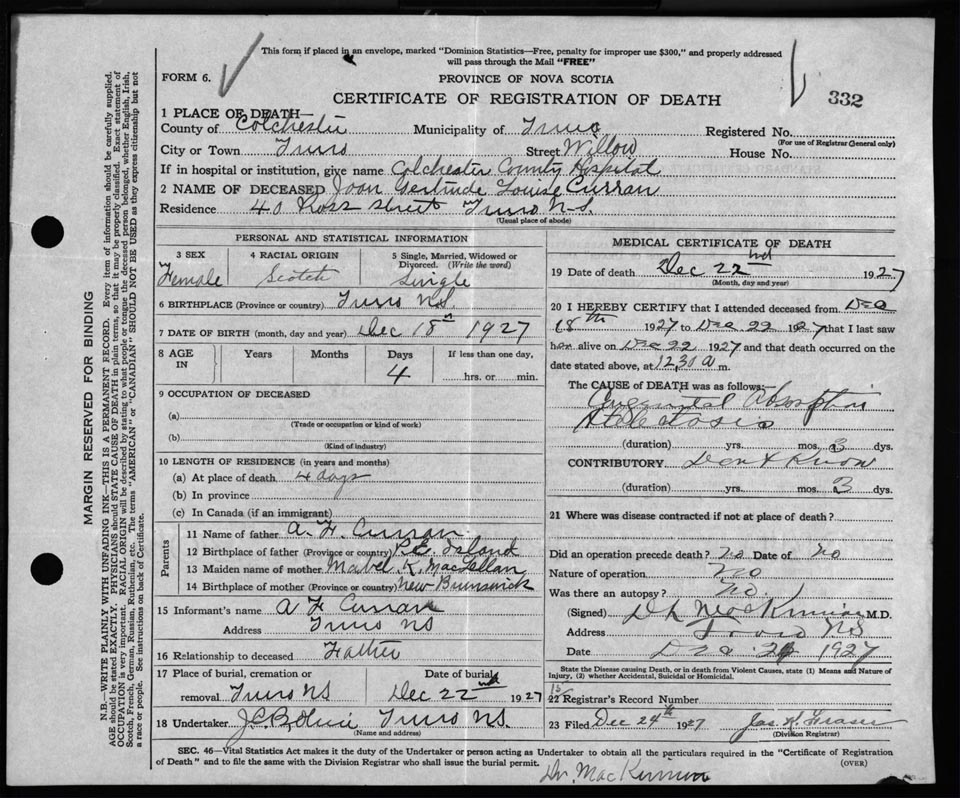 This form if placed in an envelope, marked "Dominion Statistics—Free, penalty for improper use $300," and properly addressed
will pass through the Mail "FREE"
FORM 6.
PROVINCE OF NOVA SCOTIA
CERTIFICATE OF REGISTRATION OF DEATH
332
1 PLACE OF DEATH—
County of Colchester Municipality of Truro Registered No.
(For use of Registrar General only)
City or Town Truro Street Willow House No.
If in hospital or institution, give name Colchester County Hospital
2 NAME OF DECEASED Joan Gertrude Louise Curran
Residence 40 Ross Street Truro N.S.
(Usual place of abode)
PERSONAL AND STATISTICAL INFORMATION
3 SEX 4 RACIAL ORIGIN 5 Single, Married, Widowed or Divorced. (Write the word)
Female Scotch Single
6 BIRTHPLACE (Province or country) Truro N.S.
7 DATE OF BIRTH (month, day and year) Dec 18th 1927
8 AGE IN Years Months Days If less than one day,
4 hrs. or min.
9 OCCUPATION OF DECEASED
(a)
(Trade or occupation or kind of work)
(b)
(Kind of industry)
10 LENGTH OF RESIDENCE (in years and months)
(a) At place of death 4 days
(b) In province
(c) In Canada (if an immigrant)
Parents
11 Name of father A. F. Curran
12 Birthplace of father (Province or country) P.E. Island
13 Maiden name of mother Mabel K. MacLellan
14 Birthplace of mother (Province or country) New Brunswick
15 Informant's name A F Curran
Address Truro NS
16 Relationship to deceased Father
17 Place of burial, cremation or removal Truro NS Date of burial Dec 22nd 1927
18 Undertaker Truro N.S.
(Name and address)
MEDICAL CERTIFICATE OF DEATH
19 Date of death Dec 22nd 1927
(Month, day and year)
20 I HEREBY CERTIFY that I attended deceased from Dec
18th 1927 to Dec 22 1927 that I last saw
her alive on Dec 22 1927 and that death occurred on the
date stated above, at 12.30 a m.
The CAUSE of DEATH was as follows:—
Congenital Absorption
Atelectasis
(duration) yrs. mos. 3 dys.
CONTRIBUTORY Don't Know
(duration) yrs. mos. 3 dys.
21 Where was disease contracted if not at place of death?
Did an operation precede death? no Date of no
Nature of operation no
Was there an autopsy? no.
(Signed) D L MacKinnon M.D.
Address Truro NS
Date Dec 1927
State the Disease causing Death, or in death from Violent Causes, state (1) Means and Nature of
Injury, (2) whether Accidental, Suicidal or Homicidal.
22 Registrar's Record Number
23 Filed Dec 24th 1927 Jas. K Fraser
(Division Registrar)
SEC. 46—Vital Statistics Act makes it the duty of the Undertaker or person acting as Undertaker to obtain all the particulars required in the "Certificate of Registration
of Death" and to file the same with the Division Registrar who shall issue the burial permit. (OVER)
Dr. MacKinnon
MARGIN RESERVED FOR BINDING
N.B.—WRITE PLAINLY WITH UNFADING INK—THIS IS A PERMANENT RECORD. Every item of information should be carefully supplied.
AGE should be stated EXACTLY. PHYSICIANS should STATE CAUSE OF DEATH in plain terms, so that it may be properly classified. Exact statement of
OCCUPATION is very important. RACIAL ORIGIN will be described by stating to what people or tongue the deceased person belonged, whether English, Irish,
Scotch, French, German, Russian, Ruthenian, etc. The terms "AMERICAN" or "CANADIAN" SHOULD NOT BE USED as they express citizenship but not
a race or people. See instructions on back of Certificate.